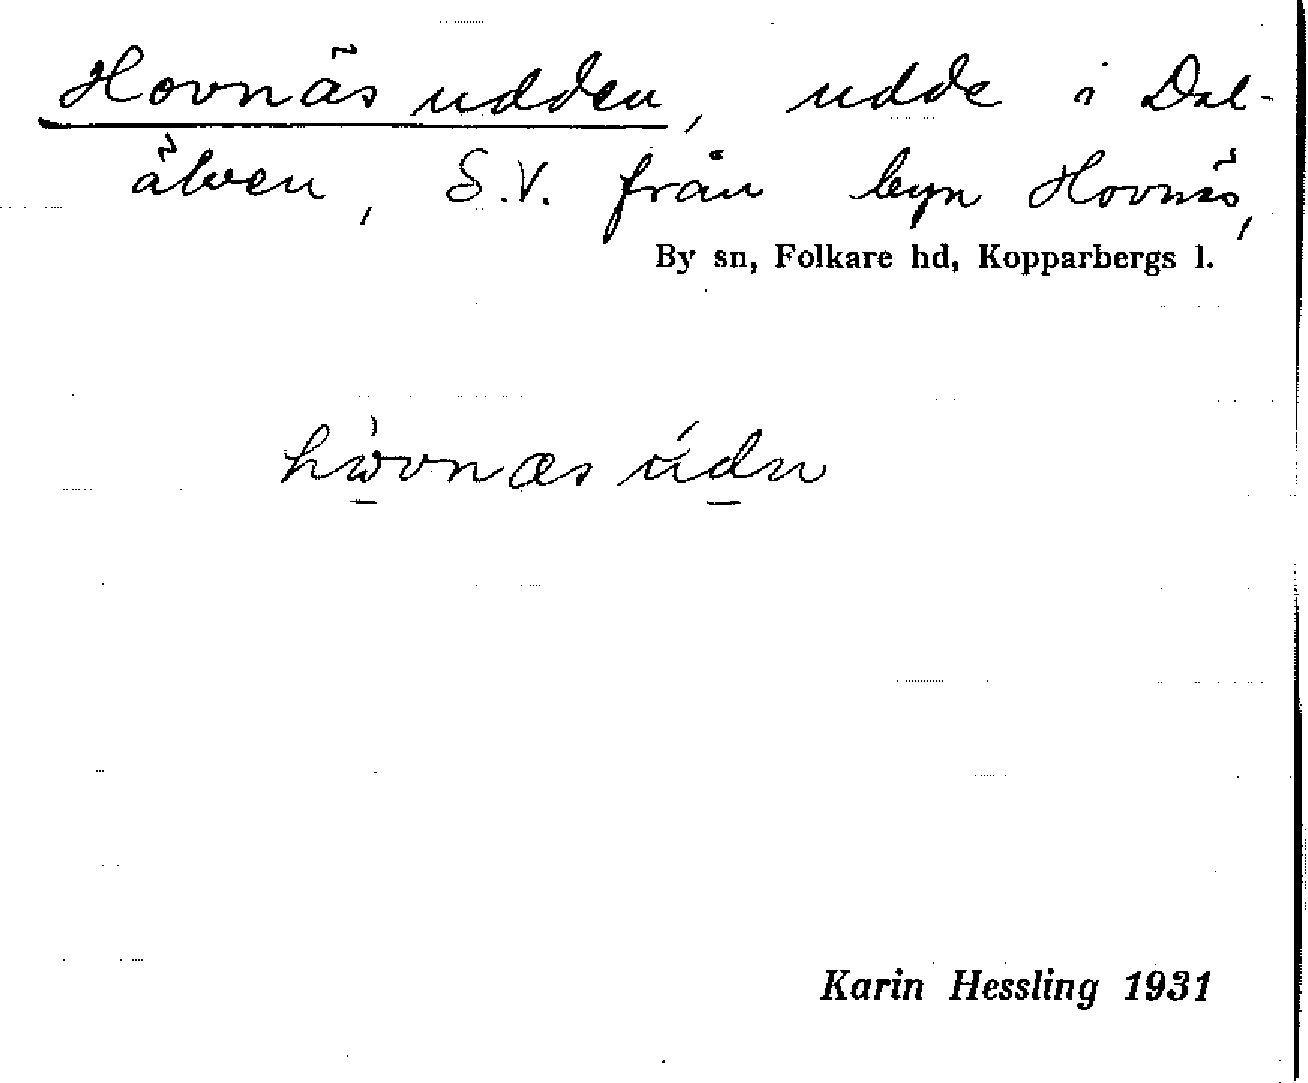 Hovnäs udden, udde i Dal-
älven, S.V. från byn Hovnäs,
By sn, Folkare hd, Kopparbergs l.
hòvnæs údn
Karin Hessling 1931